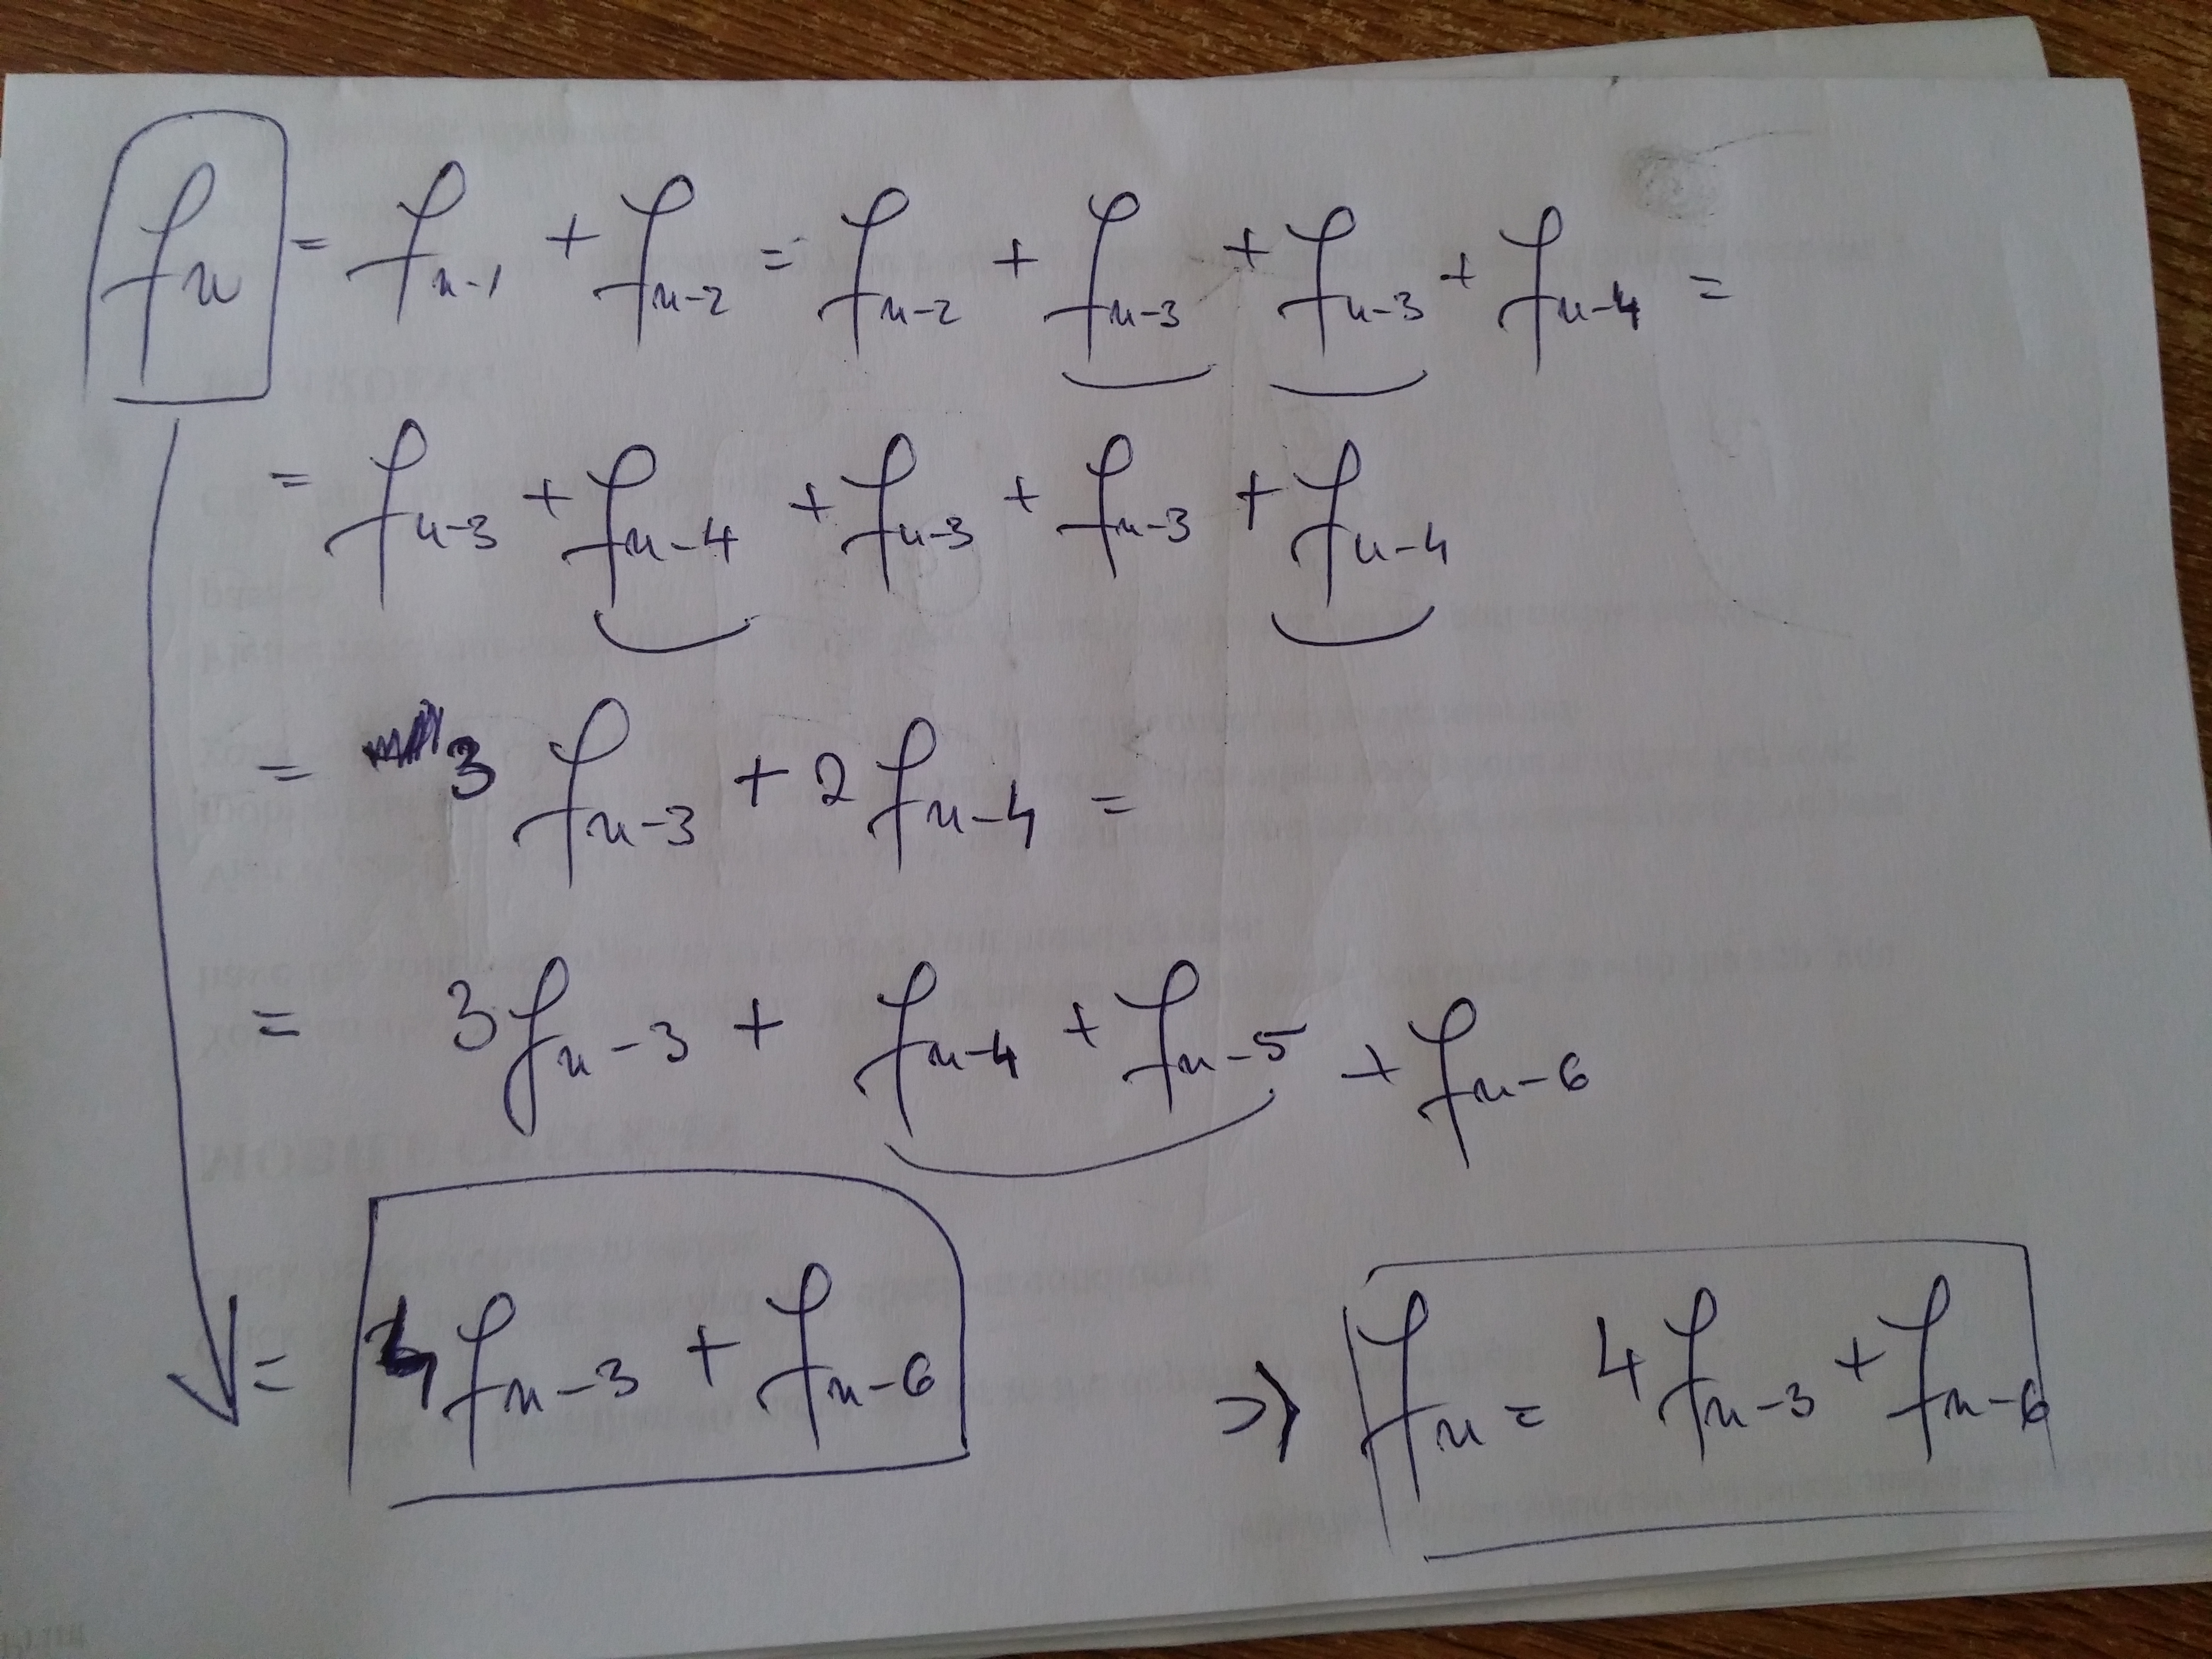 fn = fn-1 + fn-2 = fn-2 + fn-3 + fn-3 + fn-4 =
= fn-3 + fn-4 + fn-3 + fn-3 + fn-4
= 3 fn-3 + 2 fn-4 =
= 3 fn-3 + fn-4 + fn-5 + fn-6
= 4 fn-3 + fn-6 => fn = 4 fn-3 + fn-6